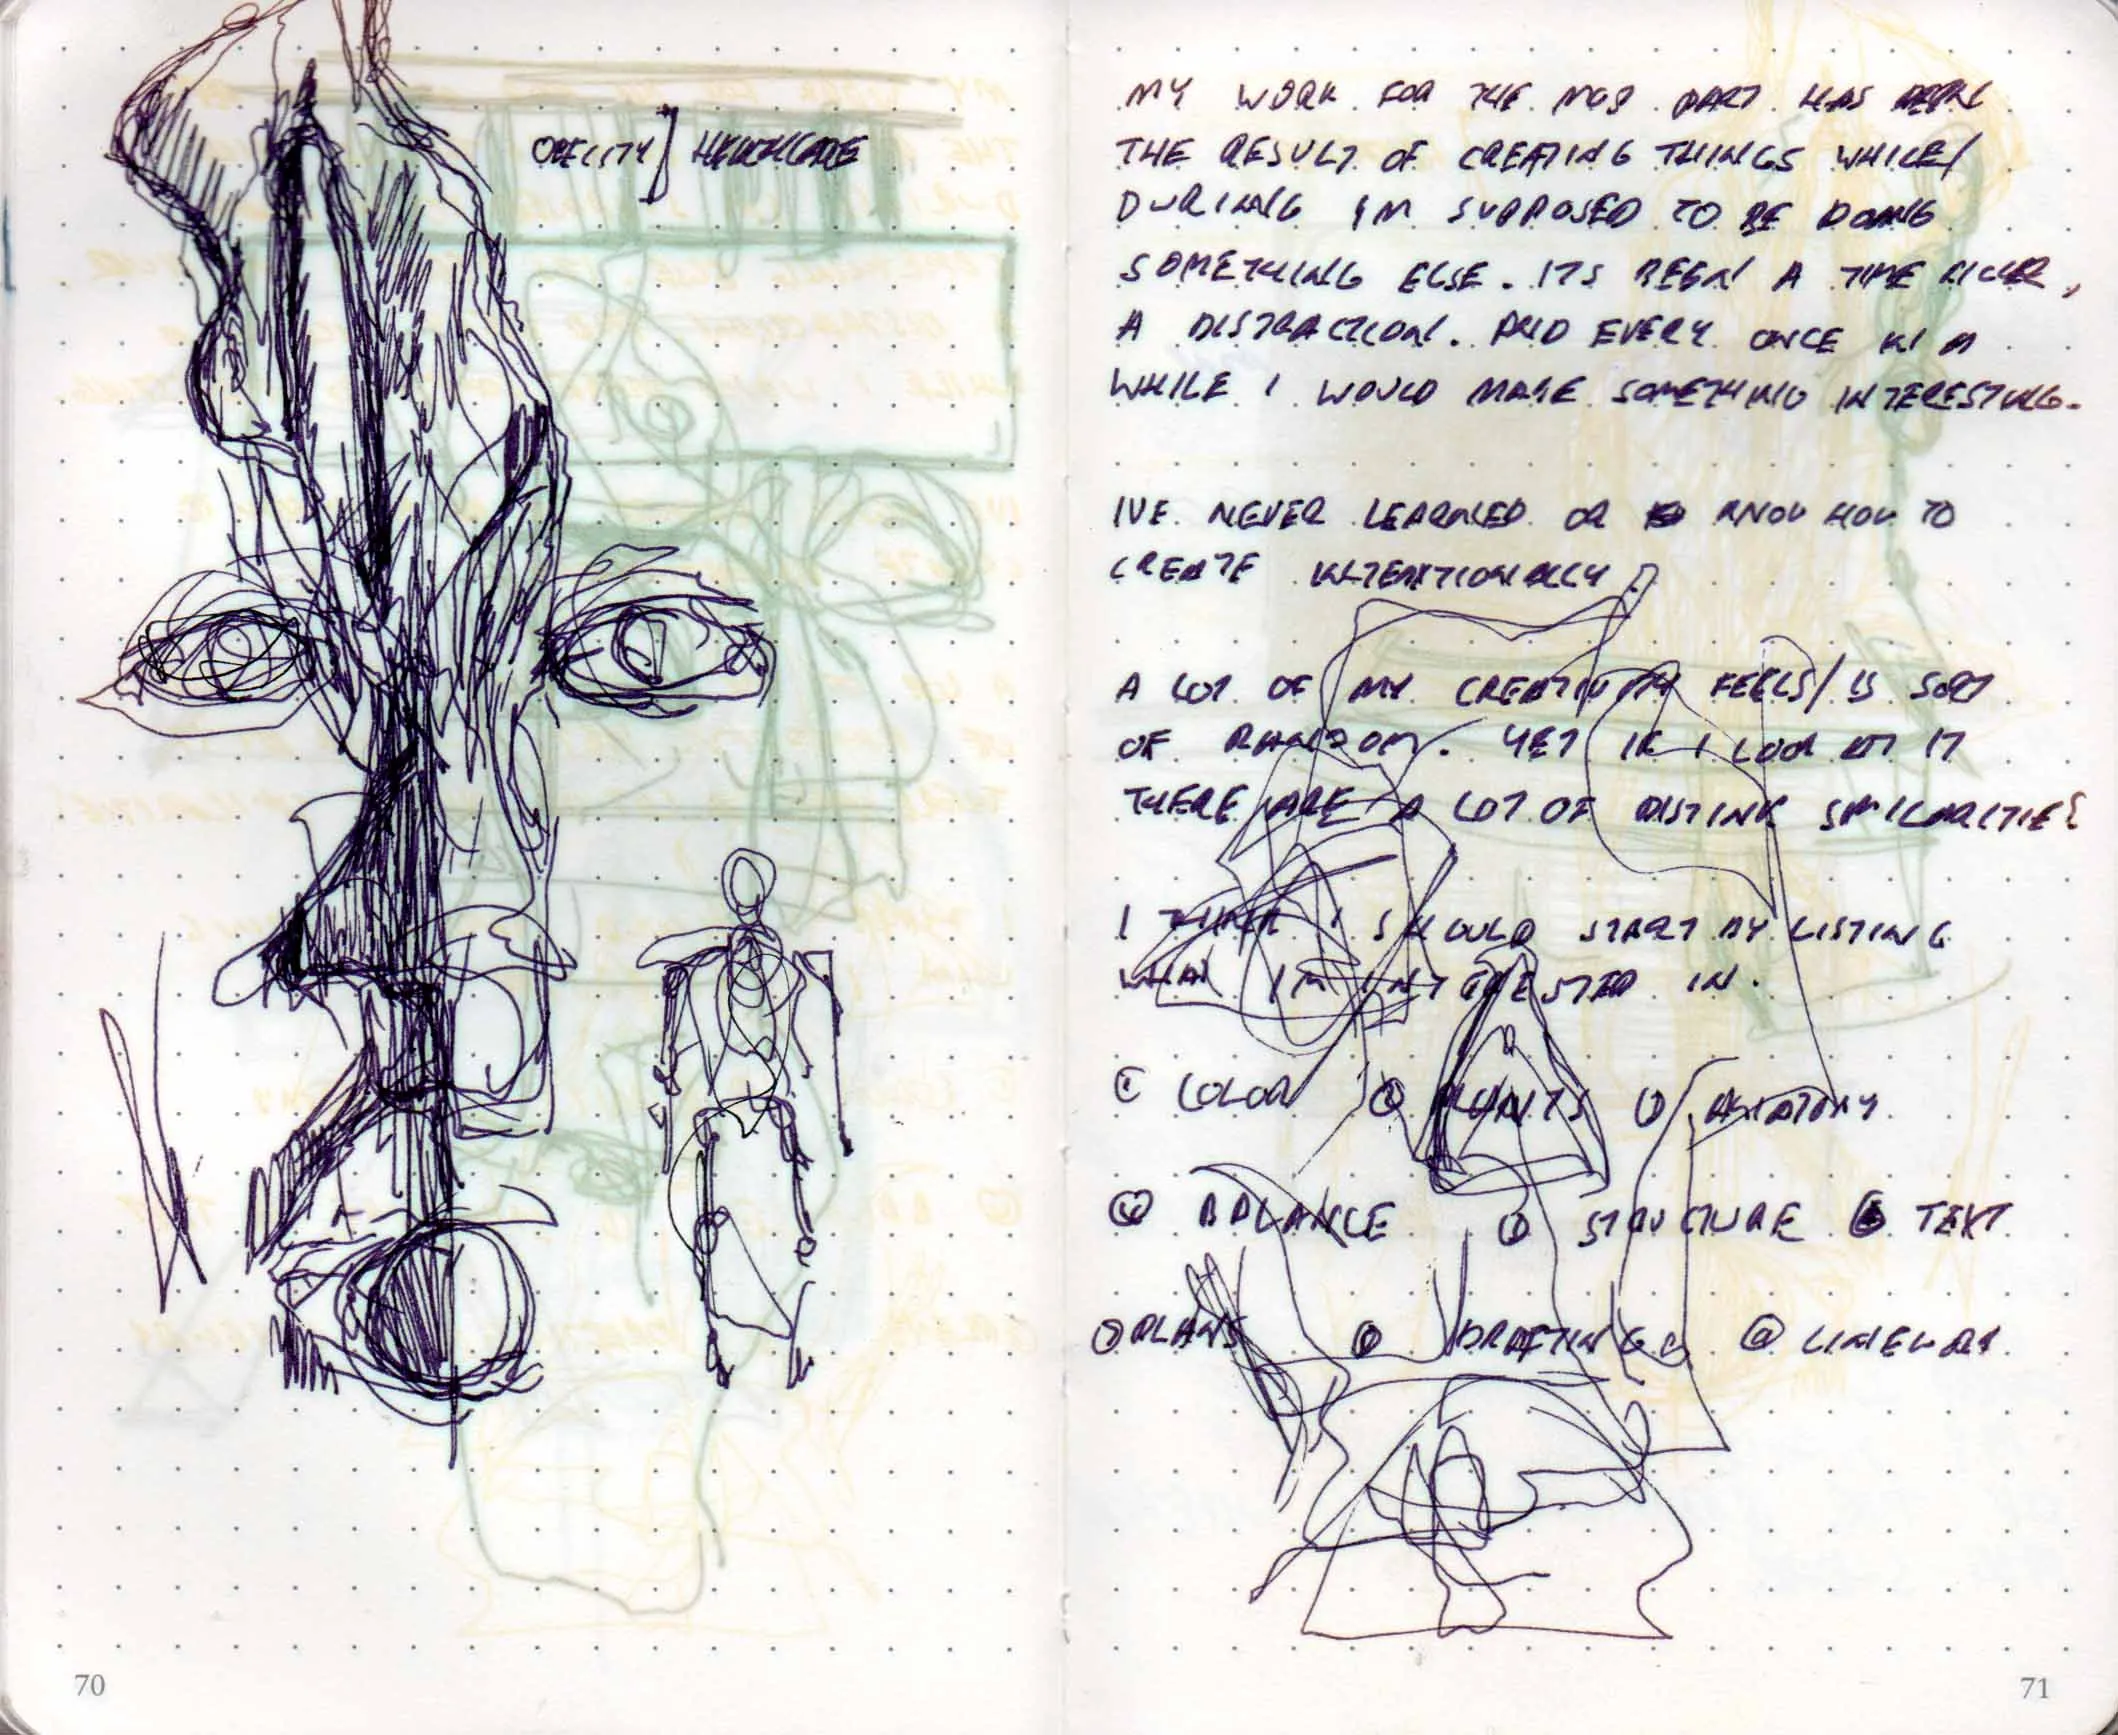 OBECITY / HEALTHCARE
MY WORK FOR THE MOS PART HAS BEEN
THE RESULT OF CREATING THINGS WHILE/
DURING IM SUPPOSED TO BE DOING
SOMETHING ELSE. ITS BEEN A TIME KILLER,
A DISTRACTION. AND EVERY ONCE IN A
WHILE I WOULD MAKE SOMETHING INTERESTING.
IVE NEVER LEARNED OR KNOW HOW TO
CREATE INTENTIONALLY
A LOT OF MY CREATIVITY FEELS/IS SORT
OF RANDOM. YET IF I LOOK AT IT
THERE ARE A LOT OF DISTINK SIMILARITIES
I THINK I SHOULD START BY LISTING
WHAT IM INTERESTED IN.
COLOR PLANTS ANATOMY
BALANCE STRUCTURE TEXT
PLANS DRAFTING LINEWORK
70
71